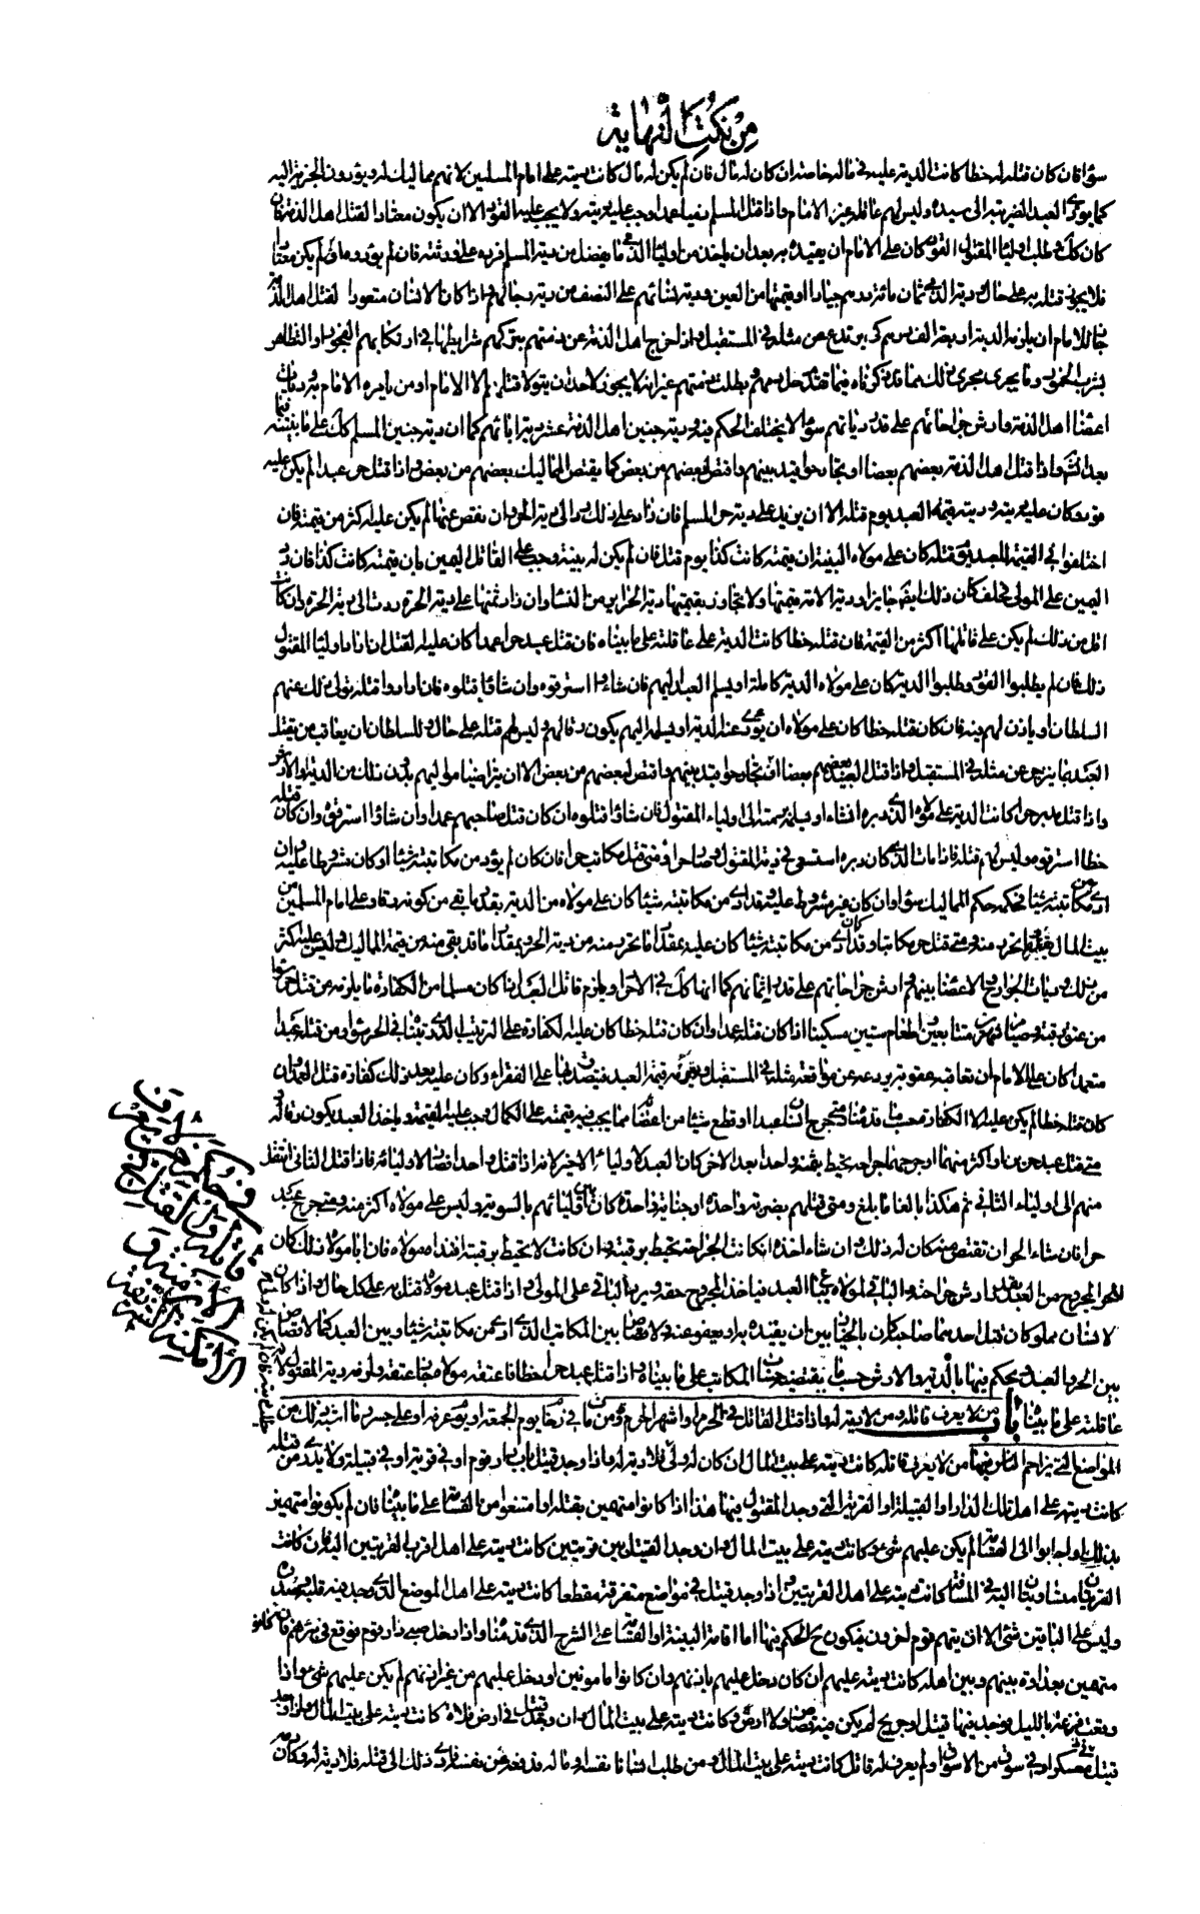 من نكت النهاية
سواء فان كان قتله له خطا كانت الدية عليه في ماله خاصة ان كان له مال فان لم يكن له مال كانت ديته على امام المسلمين لانهم مماليك له ويؤدون الجزية اليه
كما يؤدي العبد الضريبة الى سيده وليس لهم عاقلة غير الامام واذا قتل المسلم ذميا عمدا وجب عليه ديته ولا يجب عليه القود الا ان يكون معتادا لقتل اهل الذمة فان
كان كذلك وطلب اولياء المقتول القود كان على الامام ان يقيده به بعد ان ياخذ من اولياء الذمي ما يفضل من دية المسلم فيرده على ورثته فان لم يؤدوه او لم يكن معتادا
فلا يجوز قتله به على حال ودية الذمي ثمان مائة درهم جيادا او قيمتها من العين ودية نسائهم على النصف من دية رجالهم واذا كان الانسان متعودا لقتل اهل الذمة
جاز للامام ان يلزمه الدية اربعة الف درهم كي يرتدع عن مثله في المستقبل واذا خرج اهل الذمة عن ذمتهم بتركهم شرايطها في ارتكابهم الفجور او التظاهر
بشرب الخمور وما يجري مجرى ذلك مما قد ذكرناه فيما تقدم حل دمهم وبطلت ذمتهم غير انه لا يجوز لاحد ان يتولى قتلهم الا الامام او من يامره الامام به وديات
اعضاء اهل الذمة وارش جراحاتهم على قدر دياتهم سواء لا يختلف الحكم فيه ودية جنين اهل الذمة عشر دية ابائهم كما ان دية جنين المسلم كذلك على ما نبينه فيما
بعد انشاء الله واذا قتل اهل الذمة بعضهم بعضا او تجارحوا قيد بينهم واقتص لبعضهم من بعض كما يقتص للمماليك بعضهم من بعض واذا قتل حر عبدا لم يكن عليه
قود وكان عليه ديته وديته قيمة العبد يوم قتله الا ان يزيد على دية حر المسلم فان زاد على ذلك رد الى دية الحر وان نقص عنها لم يكن عليه اكثر من قيمته فان
اختلفوا في القيمة العبد يوم قتله كان على مولاه البينة ان قيمته كانت كذا يوم قتل فان لم يكن له بينة وجب على القاتل اليمين بان قيمته كانت كذا فان رد
اليمين على المولى فحلف كان ذلك ايضا جايزا ودية الامة قيمتها ولا يتجاوز بقيمتها دية الحراير من النساء وان زاد ثمنها على دية الحرة ردت الى دية الحرة وان كان
اقل من ذلك لم يكن على قاتلها اكثر من القيمة فان قتله خطا كانت الدية على عاقلته على ما بيناه فان قتل عبد حرا عمدا كان عليه القتل ان اراد اولياء المقتول
ذلك فان لم يطلبوا القود وطلبوا الدية كان على مولاه الدية كاملة او يسلم العبد اليهم فان شاؤا استرقوه وان شاؤا قتلوه فان ارادوا قتله تولى ذلك عنهم
السلطان او ياذن لهم فيه فان كان قتله خطا كان على مولاه ان يؤدي عنه الدية او يسلمه اليهم يكون رقا لهم وليس لهم قتله على حال وللسلطان ان يعاقب من يقتل
العبيد بما ينزجر عن مثله في المستقبل واذا قتل العبيد بعضهم بعضا او تجارحوا قيد بينهم واقتص لبعضهم من بعض الا ان يتراضيا مواليهم بدون ذلك من الدية والارش
واذا قتل مدبر حرا كانت الدية على مولاه الذي دبره انشاء او يسلمه برمته الى اولياء المقتول فان شاؤا قتلوه ان كان قتل صاحبهم عمدا وان شاؤا استرقوه وان كان قتله
خطا استرقوه وليس لهم قتله فاذا مات الذي كان دبره استسعي في دية المقتول وصار حرا ومتى قتل مكاتب حرا فان كان لم يؤد من مكاتبته شيئا او كان مشروطا عليه وان
ادى من مكاتبته شيئا فحكمه حكم المماليك سواء وان كان غير مشروط عليه وقد ادى من مكاتبته شيئا كان على مولاه من الدية بقدر ما بقي من كونه رقا وعلى امام المسلمين من
بيت المال بقدر ما تحرر منه ومتى قتل حر مكاتبا وكان قد ادى من مكاتبته شيئا كان عليه بمقدار ما تحرر منه من دية الحر وبمقدار ما قد بقي منه من قيمة المماليك وليس عليه اكثر
من ذلك وديات الجوارح والاعضاء بينهم وارش جراحاتهم على قدر اثمانهم كما انها كذلك في الاحرار ويلزم قاتل العبد اذا كان مسلما من الكفارة ما يلزمه من قتل حر سواء
من عتق رقبة وصيام شهرين متتابعين واطعام ستين مسكينا اذا كان قتله عمدا وان كان قتله خطا كان عليه الكفارة على الترتيب الذي بيناه في الحر سواء ومن قتل عبدا
متعمدا كان على الامام ان يعاقبه عقوبة تردعه عن مواقعة مثله في المستقبل ويغرمه قيمة العبد فيتصدق بها على الفقراء وكان عليه بعد ذلك كفارة قتل العمد وان
كان قتله خطا لم يكن عليه الا الكفارة حسب ما قدمناه ومتى جرح انسان عبدا او قطع شيئا من اعضائه مما يجب فيه قيمته على الكمال وجب عليه القيمة وياخذ العبد يكون رقا له
متى قتل عبد حرين او اكثر منهما او جرحهما جراحة يحيط بثمنه واحدا بعد الاخر كان العبد لاولياء الاخير لانه اذا قتل واحدا صار لاوليائه فاذا قتل الثاني انتقل
منهم الى اولياء الثاني ثم هكذا بالغا ما بلغ ومتى قتلهم بضربة واحدة او جناية واحدة كان بين اوليائهم بالسوية وليس على مولاه اكثر منه ومتى جرح عبد
حرا فان شاء الحر ان تقتص منه كان له ذلك وان شاء اخذه ان كانت الجراحة يحيط برقبته وان كانت لا يحيط برقبته افتداه مولاه فان ابى مولاه ذلك كان
للحر المجروح من العبد بقدر ارش جراحته والباقي لمولاه يباع العبد فياخذ المجروح حقه ويرد الباقي على المولى واذا قتل عبد مولاه قتل به على كل حال واذا كان
لانسان مملوكان قتل احدهما صاحبه كان بالخيار بين ان يقيده به او يعفو عنه ولا قصاص بين المكاتب الذي ادى من مكاتبته شيئا وبين العبد كما لا قصاص
بين الحر والعبد ويحكم فيهما بالدية والارش حسب ما يقتضيه حساب المكاتب على ما بيناه واذا قتل عبد حرا خطا فاعتقه مولاه جاز عتقه ولزمه دية المقتول لان
عاقلته على ما بيناه باب من لا يعرف قاتله ومن لا دية له اذا قتل القاتل في الحرم او اشهر الحرم ومن مات في زحام يوم الجمعة او يوم عرفة او على جسر وما اشبه ذلك من
المواضع التي يتزاحم الناس فيها من لا يعرف قاتله كانت ديته على بيت المال ان كان له ولي فلا دية له واذا وجد قتيل في باب دار قوم او في قرية او في قبيلة ولا يدرى من قتله
كانت ديته على اهل تلك الدار او القبيلة او القرية التي وجد المقتول فيها هذا اذا كانوا متهمين بقتله او امتنعوا من القسامة على ما بيناه فان لم يكونوا متهمين
بذلك او اجابوا الى القسامة لم يكن عليهم شيء وكانت ديته على بيت المال وان وجد القتيل بين قريتين كانت ديته على اهل اقرب القريتين اليه فان كانت
القريتان متساويتان اليه في المسافة كانت ديته على اهل القريتين واذا وجد قتيل في مواضع متفرقة مقطعا كانت ديته على اهل الموضع الذي وجد فيه قلبه وصدره
وليس على الباقين شيء الا ان يتهم قوم اخرون فيكون ح الحكم فيهم اما اقامة البينة او القسامة على الشرح الذي قدمناه واذا دخل صبي دار قوم فوقع في بئرهم فان كانوا
متهمين بعداوة بينهم وبين اهله كانت ديته عليهم ان كان دخل عليهم باذنهم وان كانوا مامونين او دخل عليهم من غير اذنهم لم يكن عليهم شيء واذا
وقعت فزعة بالليل يوجد فيها قتيل او جريح لم يكن فيه قصاص ولا ارش وكانت ديته على بيت المال وان وجد قتيل في ارض فلاة كانت ديته على بيت المال واذا وجد
قتيل في معسكر او في سوق من الاسواق ولم يعرف له قاتل كانت ديته على بيت المال ومن طلب انسانا نفسه او ماله فدفعه عن نفسه فادى ذلك الى قتله فلا دية له وكان دمه